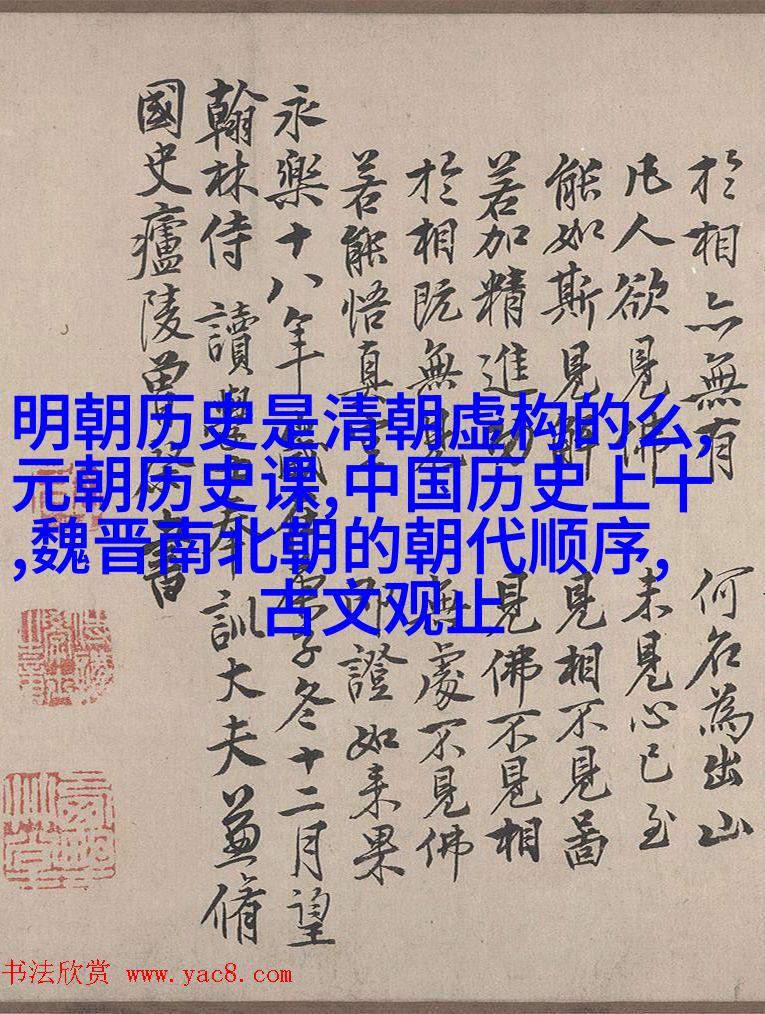 於相亦無有 何名為出山
凡人欲見佛 未見心已至
能如斯見解 見相不見啚
若加精進功 見佛不見相
於相既無見 處不見佛
若能悟真 證如来果
永樂十八年歲在庚子冬十二月望
翰林侍讀學士奉訓大夫兼脩
國史廬陵曾棨書
明朝历史是清朝虚构的么,
元朝历史课,中国历史上十
,魏晋南北朝的朝代顺序,
古文观止
书法欣赏 www.yac8.com